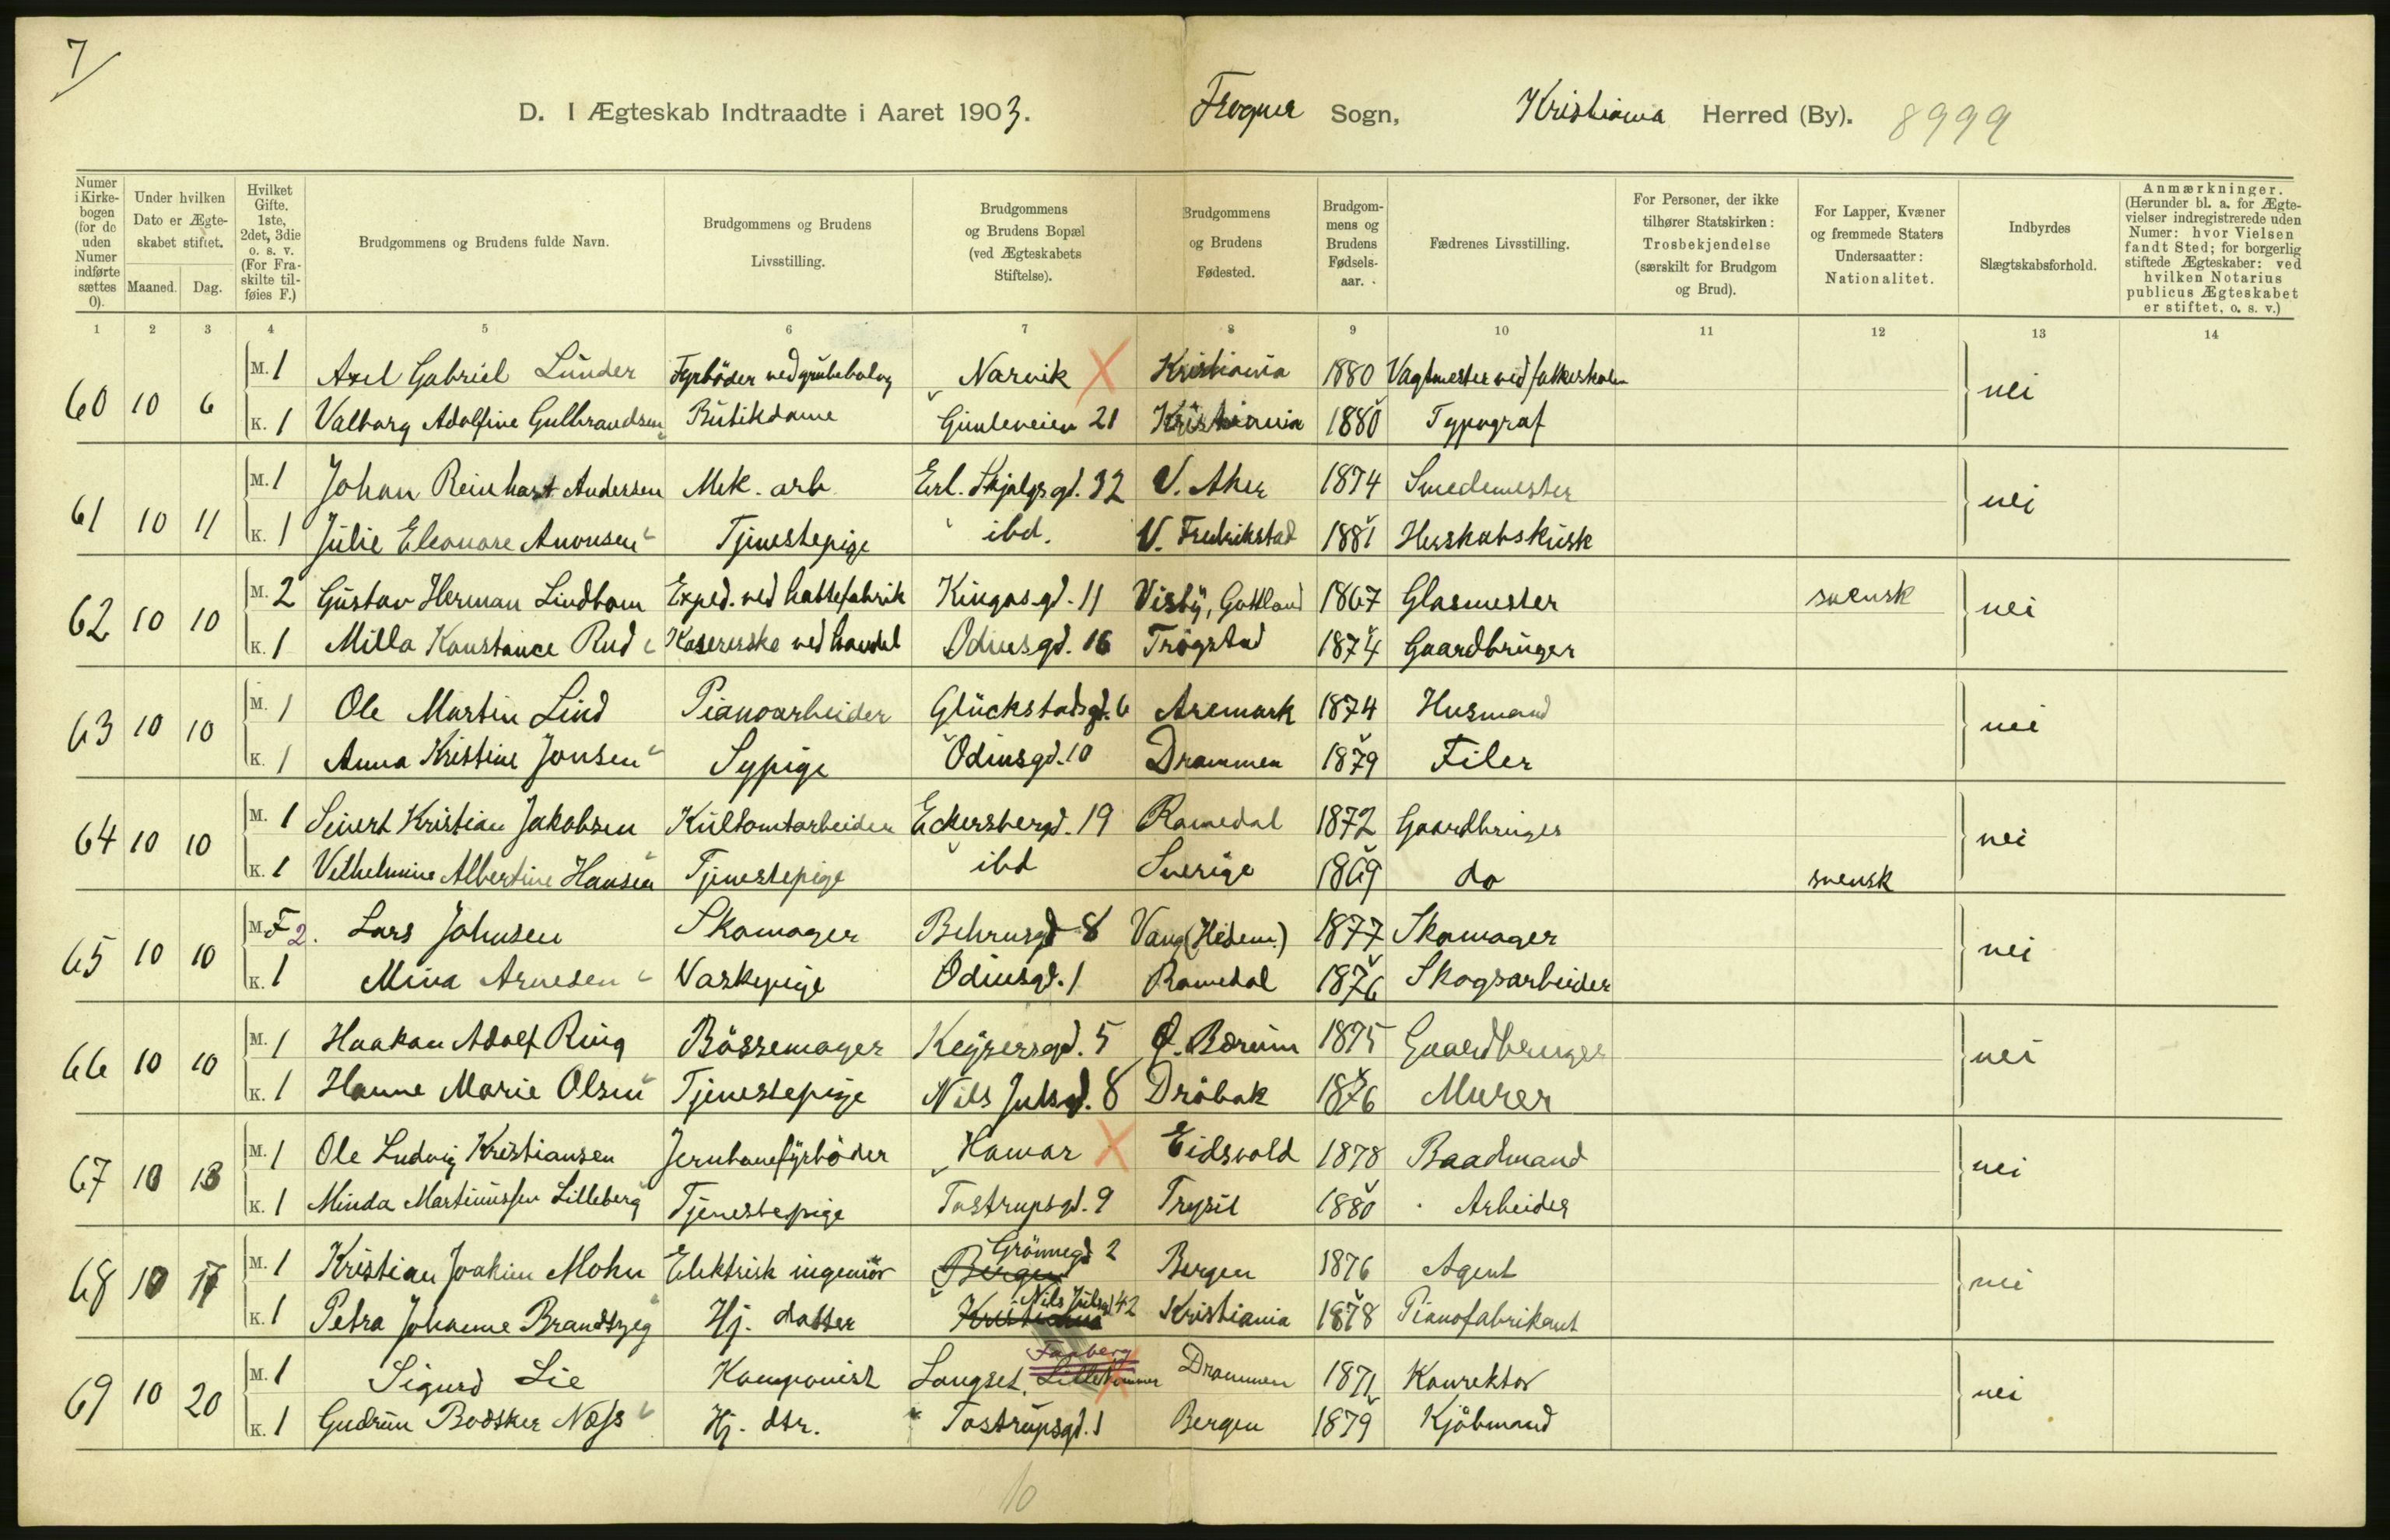 7/
D. I Ægteskab Indtraadte i Aaret 1903. Frogner Sogn, Kristiania Herred (By). 8999
Numer i Kirkebogen (for de uden Numer indførte sættes 0).
Under hvilken Dato er Ægteskabet stiftet.
Maaned. Dag.
Hvilket Gifte. 1ste, 2det, 3die o. s. v. (For Fraskilte tilføies F.)
Brudgommens og Brudens fulde Navn.
Brudgommens og Brudens Livsstilling.
Brudgommens og Brudens Bopæl (ved Ægteskabets Stiftelse).
Brudgommens og Brudens Fødested.
Brudgommens og Brudens Fødselsaar.
Fædrenes Livsstilling.
For Personer, der ikke tilhører Statskirken: Trosbekjendelse (særskilt for Brudgom og Brud).
For Lapper, Kvæner og fremmede Staters Undersaatter: Nationalitet.
Indbyrdes Slægtskabsforhold.
Anmærkninger. (Herunder bl. a. for Ægtevielser indregistrerede uden Numer: hvor Vielsen fandt Sted; for borgerlig stiftede Ægteskaber: ved hvilken Notarius publicus Ægteskabet er stiftet, o. s. v.)
1 2 3 4 5 6 7 8 9 10 11 12 13 14
60 10 6 M. 1 Axel Gabriel Lunder Fyrbøder ved Narvik Kristiania 1880 Vagtmester ved nei
K. 1 Valborg Adolfine Gulbrandsen Butikdame Gimleveien 21 Kristiania 1880 Typograf
61 10 11 M. 1 Johan Reinhart Andersen Mek. arb. Erl. Skjalgs gd. 32 V. Aker 1874 Smedemester nei
K. 1 Julie Eleonore Anonsen Tjenestepige ibd. V. Fredrikstad 1881 Herskabskusk
62 10 10 M. 2 Gustav Herman Lindbom Exped. ved hattefabrik Kingos gd. 11 Visby, Gottland 1867 Glasmester svensk nei
K. 1 Milla Konstance Rud Kasererske ved handel Odinsgd. 16 Trøgstad 1874 Gaardbruger
63 10 10 M. 1 Ole Martin Lind Pianoarbeider Glückstadsgd. 6 Aremark 1874 Husmand nei
K. 1 Anna Kristine Jonsen Sypige Odinsgd. 10 Drammen 1879 Filer
64 10 10 M. 1 Sivert Kristian Jakobsen Kultomtarbeider Eckersbergd. 19 Romedal 1872 Gaardbruger nei
K. 1 Vilhelmine Albertine Hansen Tjenestepige ibd Sverige 1869 do svensk
65 10 10 M. F 2. Lars Johnsen Skomager Behrnsgd 8 Vang (Hedem.) 1877 Skomager nei
K. 1 Mina Arnesen Vaskepige Odinsgd. 1 Romedal 1876 Skogsarbeider
66 10 10 M. 1 Haakon Adolf Ring Bøssemager Keysersgd. 5 Ø. Bærum 1875 Gaardbruger nei
K. 1 Hanne Marie Olsen Tjenestepige Nils Julsgd. 8 Drøbak 1876 Murer
67 10 18 M. 1 Ole Ludvig Kristiansen Jernbanefyrbøder Hamar Eidsvold 1878 Baadmand nei
K. 1 Minda Martinussen Lilleberg Tjenestepige Tostrupsgd. 9 Trysil 1880 Arbeider
68 10 17 M. 1 Kristian Joakim Mohn Elektrisk ingeniør Bergen Grønnegd 2 Bergen 1876 Agent nei
K. 1 Petra Johanne Brandtzeg Hj. datter Kristiania Nils Julsgd 42 Kristiania 1878 Pianofabrikant
69 10 20 M. 1 Sigurd Lie Komponist Langset, Lillehammer Faaberg Drammen 1871 Konrektor nei
K. 1 Gudrun Bodsker Næss Hj. dtr. Tostrupsgd. 1 Bergen 1879 Kjøbmand
10